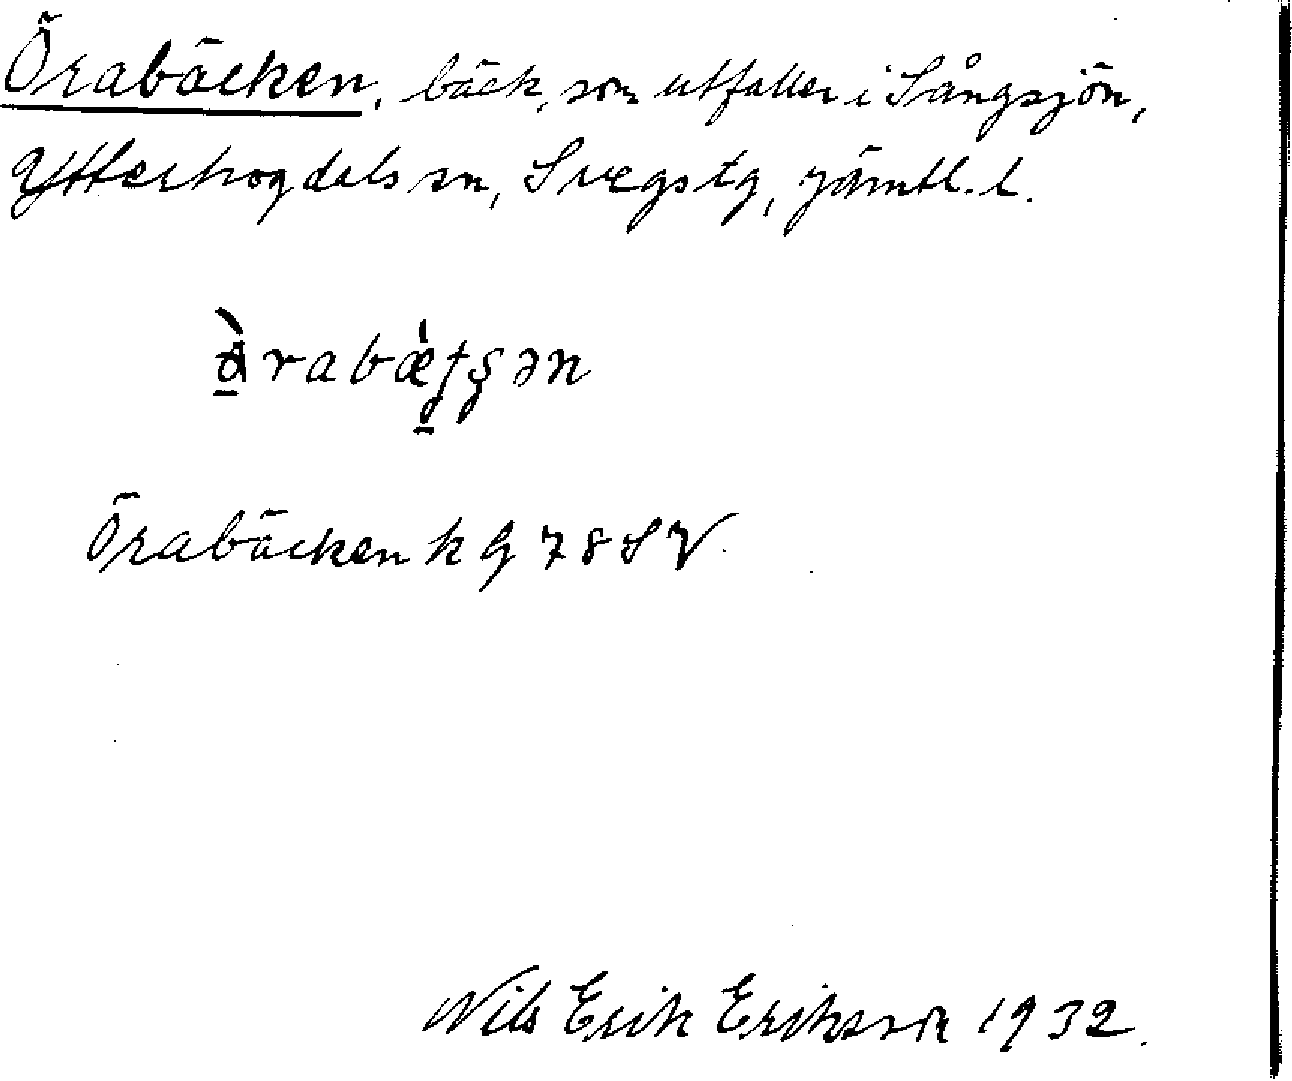 Örabäcken, bäck, som utfaller i Sångsjön,
Ytterhogdals sn, Svegs tg, Jämtl. l.
Örabäcken k G 78 SV.
Nils Erik Eriksson 1932.